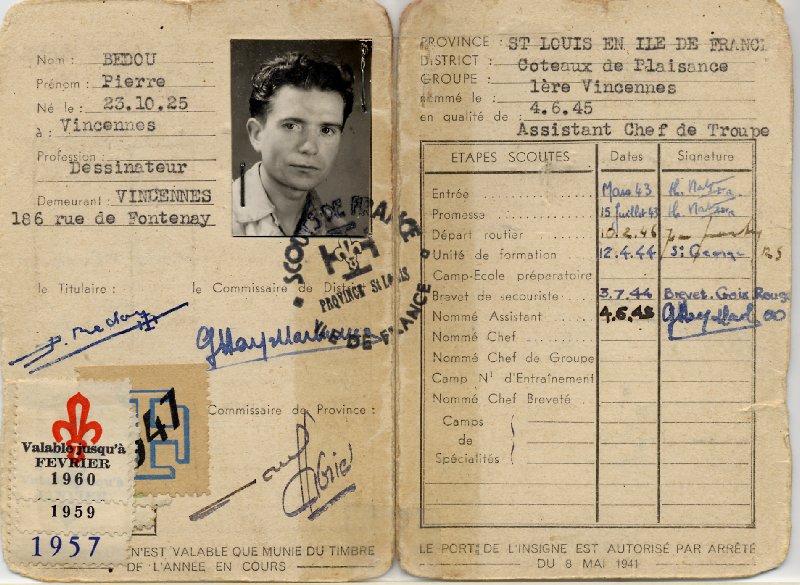 Nom : BEDOU
Prénom : Pierre
Né le : 23.10.25
à : Vincennes
Profession :
Dessinateur
Demeurant : VINCENNES
186 rue de Fontenay
le Titulaire :
le Commissaire de District
SCOUTS DE FRANCE
PROVINCE St LOUIS
ILE DE FRANCE
Commissaire de Province :
1947
Valable jusqu'à
FÉVRIER
1960
1959
1957
N'EST VALABLE QUE MUNIE DU TIMBRE
DE L'ANNEE EN COURS
PROVINCE : ST LOUIS EN ILE DE FRANCE
DISTRICT : Coteaux de Plaisance
GROUPE : 1ère Vincennes
nommé le : 4.6.45
en qualité de :
Assistant Chef de Troupe
ETAPES SCOUTES Dates Signature
Entrée Mars 43
Promesse 15 Juillet 43
Départ routier 10.2.46
Unité de formation 12.4.44 St George
Camp-Ecole préparatoire
Brevet de secouriste 3.7.44 Brevet Croix Rouge
Nommé Assistant 4.6.45
Nommé Chef
Nommé Chef de Groupe
Camp N¹ d'Entraînement
Nommé Chef Breveté
Camps
de
Spécialités
LE PORT DE L'INSIGNE EST AUTORISÉ PAR ARRÊTÉ
DU 8 MAI 1941